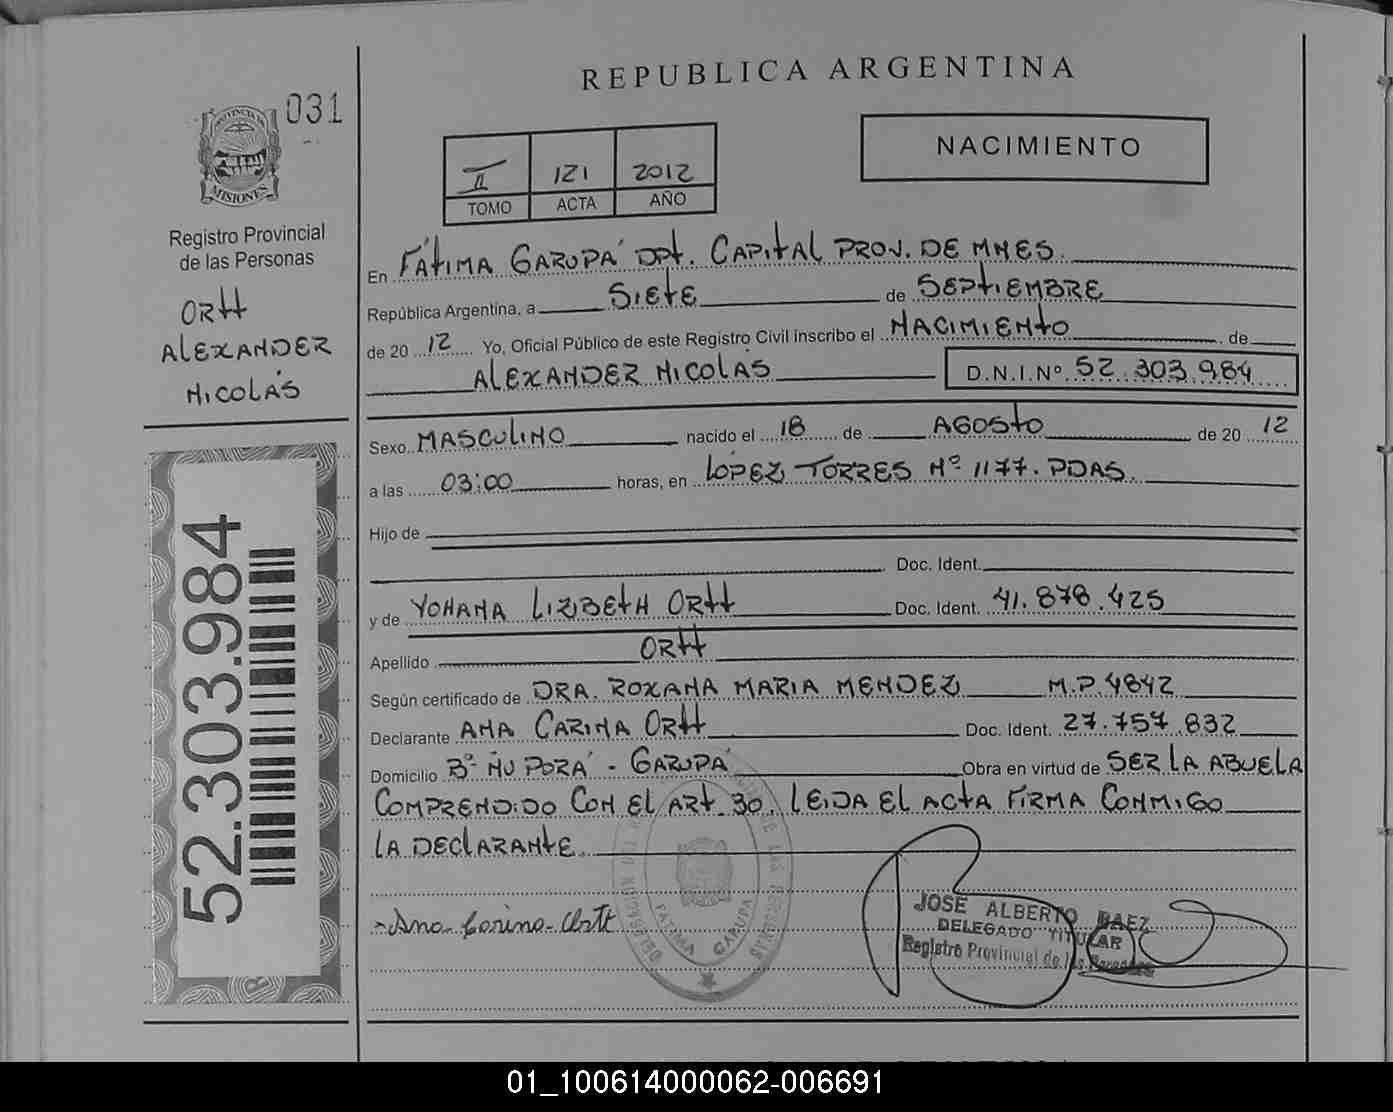 REPUBLICA ARGENTINA
031
PROVINCIA DE
MISIONES
Registro Provincial
de las Personas
ORTT
ALEXANDER
NICOLÁS
52.303.984
II 121 2012
TOMO ACTA AÑO
NACIMIENTO
En FÁTIMA GARUPÁ DPT. CAPITAL PROV. DE MNES.
República Argentina, a SIETE de SEPTIEMBRE
de 20 12 Yo, Oficial Público de este Registro Civil inscribo el NACIMIENTO de
ALEXANDER NICOLÁS D.N.I.Nº 52.303.984
Sexo MASCULINO nacido el 18 de AGOSTO de 20 12
a las 03:00 horas, en LÓPEZ TORRES Nº 1177. PDAS.
Hijo de
Doc. Ident.
y de YOHANA LIZBETH ORTT Doc. Ident. 41.878.425
Apellido ORTT
Según certificado de DRA. ROXANA MARIA MENDEZ M.P.4842
Declarante ANA CARINA ORTT Doc. Ident. 27.757.832
Domicilio Bº ÑU PORÁ - GARUPÁ Obra en virtud de SER LA ABUELA
COMPRENDIDO CON EL ART. 30. LEIDA EL ACTA FIRMA CONMIGO
LA DECLARANTE
Ana Carina Ortt
FATIMA GARUPA
JOSE ALBERTO BAEZ
DELEGADO TITULAR
Registro Provincial de las Personas
01_100614000062-006691